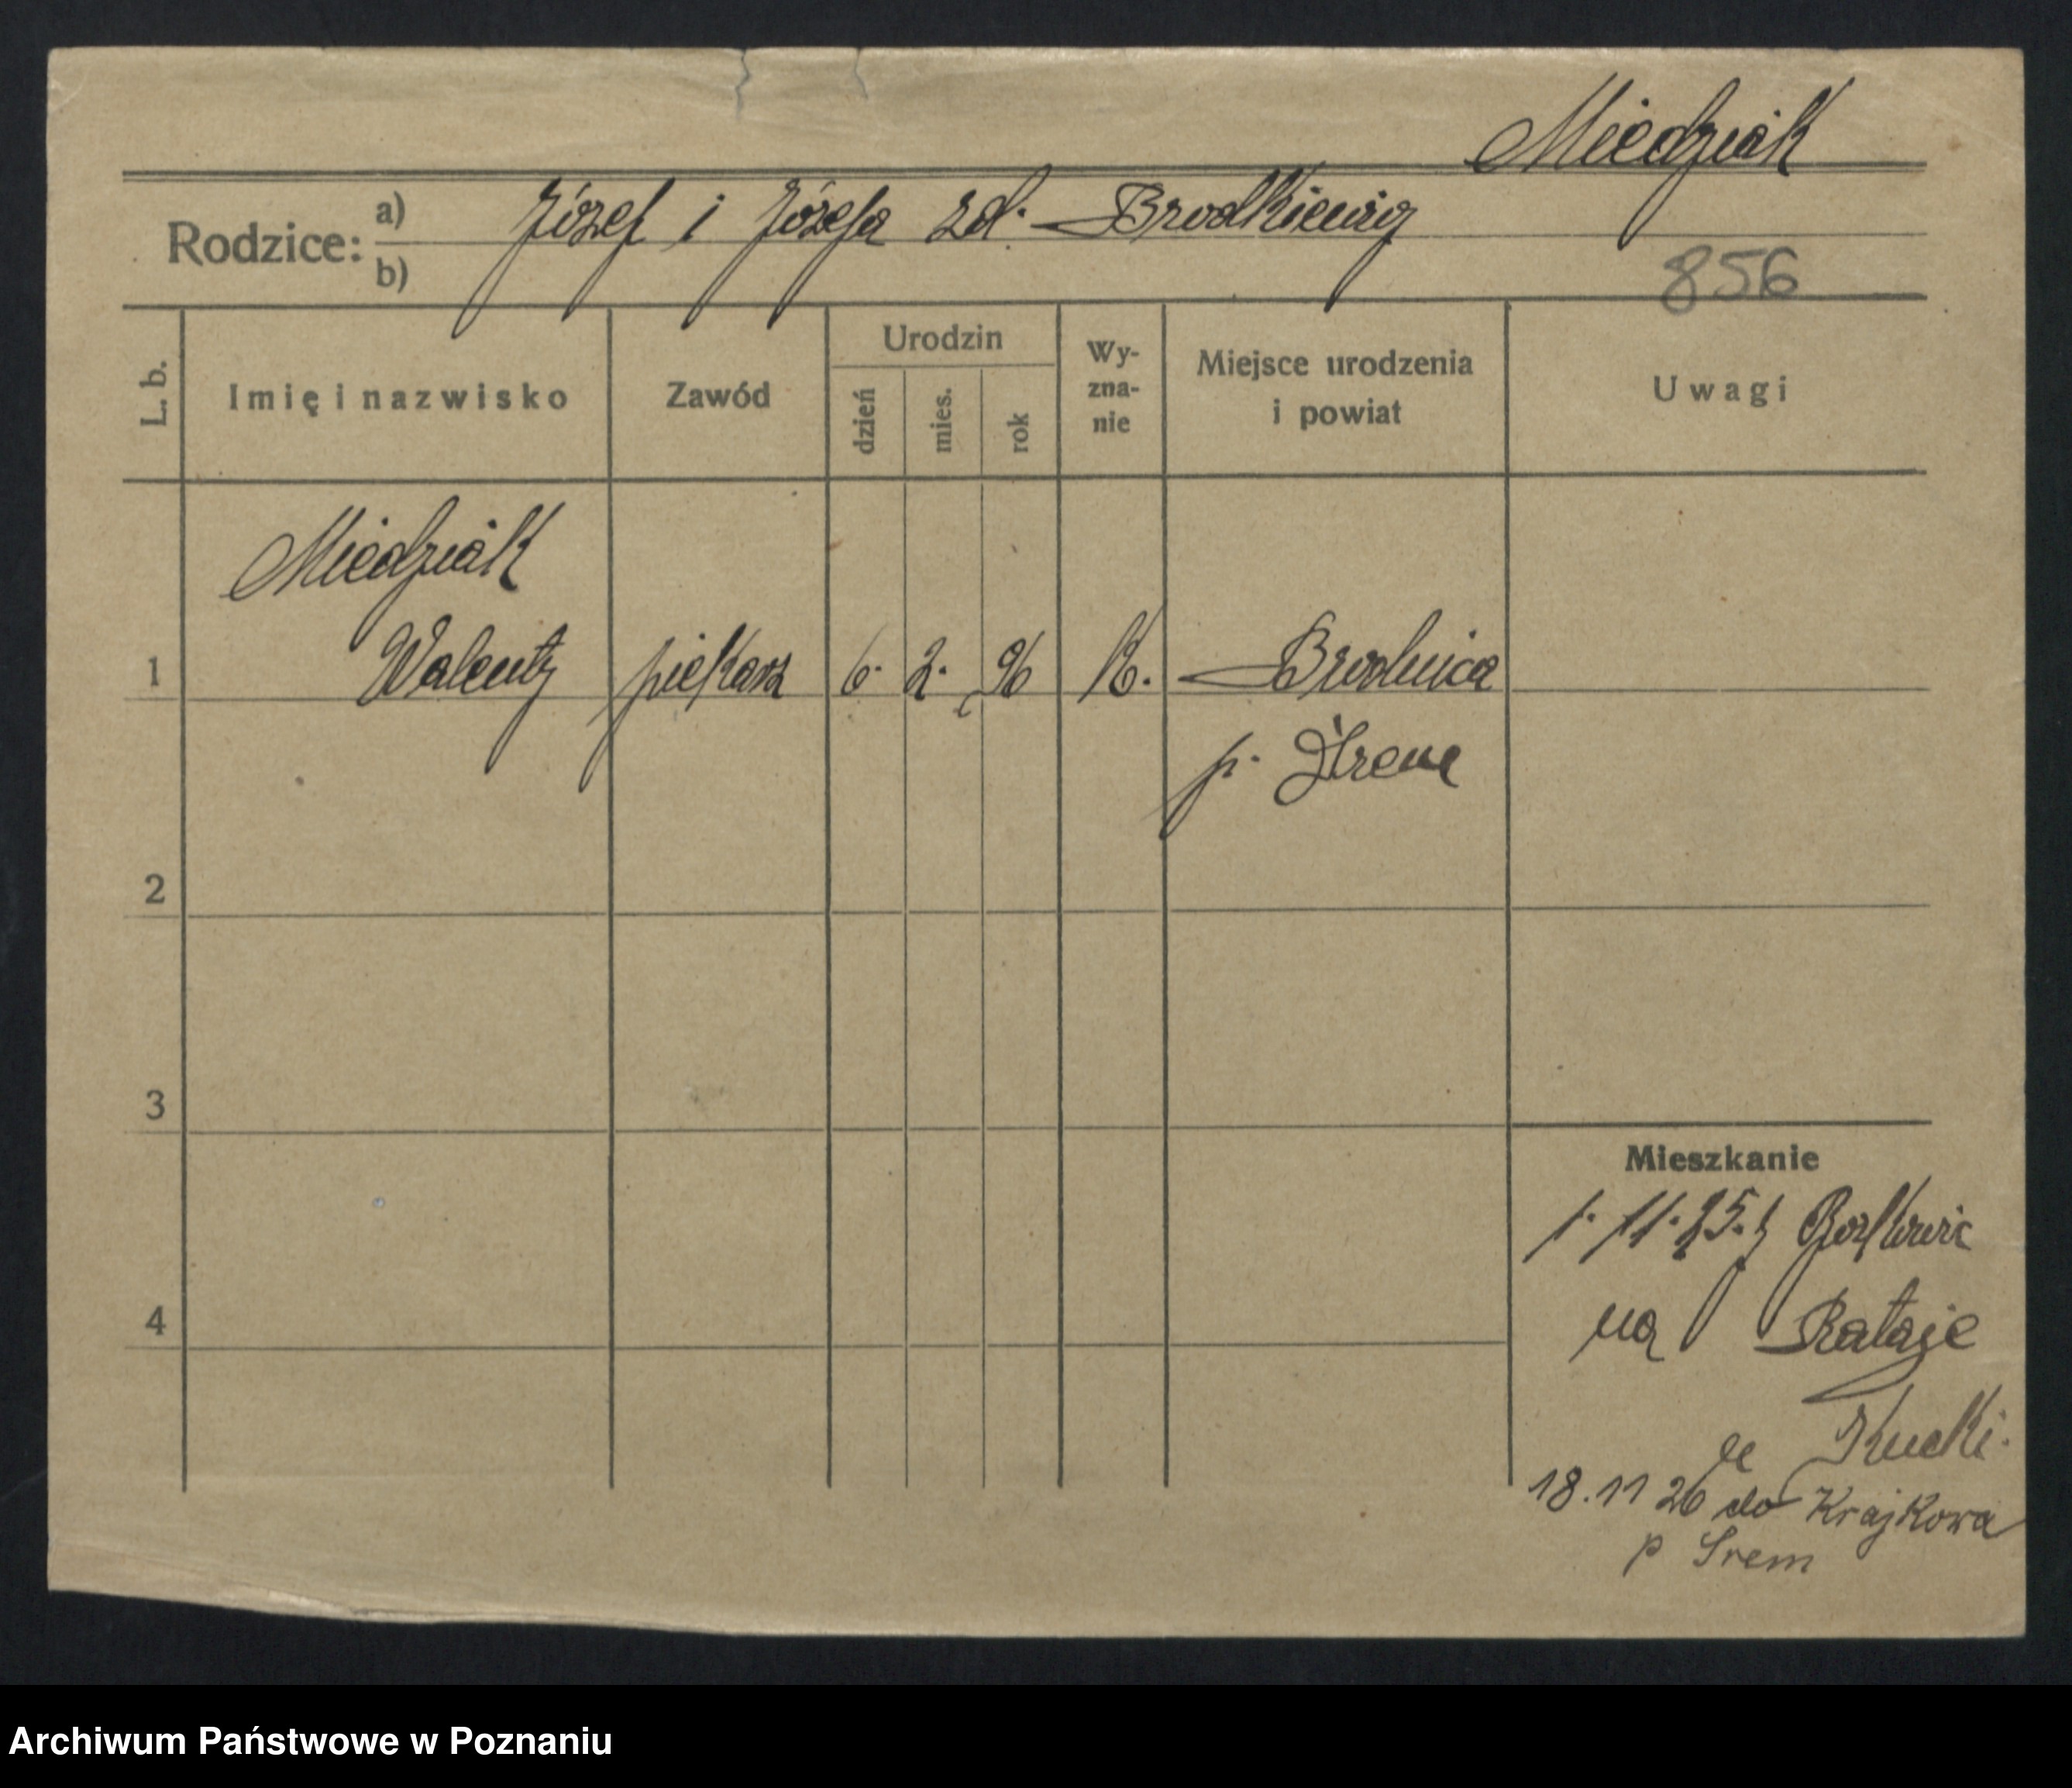 Miedziak
Rodzice: a) Józef i Józefa zd. Brodkiewicz
b)
856
L. b.
Imię i nazwisko
Zawód
Urodzin
dzień
mies.
rok
Wy-
zna-
nie
Miejsce urodzenia
i powiat
Uwagi
Miedziak
1 Walenty piekarz 6. 2. 96 K. Brodnica
p. Śrem
2
3
Mieszkanie
1. 11. 25. z
na Rataje
4
18.11 26 do Krajkowa
p Śrem
Archiwum Państwowe w Poznaniu